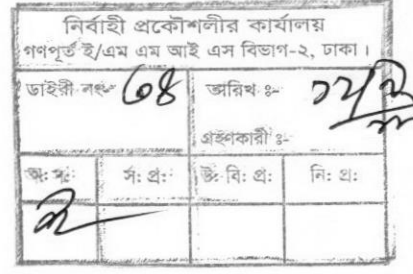 নির্বাহী প্রকৌশলীর কার্যালয়
গণপূর্ত ই/এম এম আই এস বিভাগ-২, ঢাকা।
ডাইরী নং- ৩৪ তারিখ ঃ-
গ্রহণকারী ঃ-
অ: স: স: প্র: উ: বি: প্র: নি: প্র: